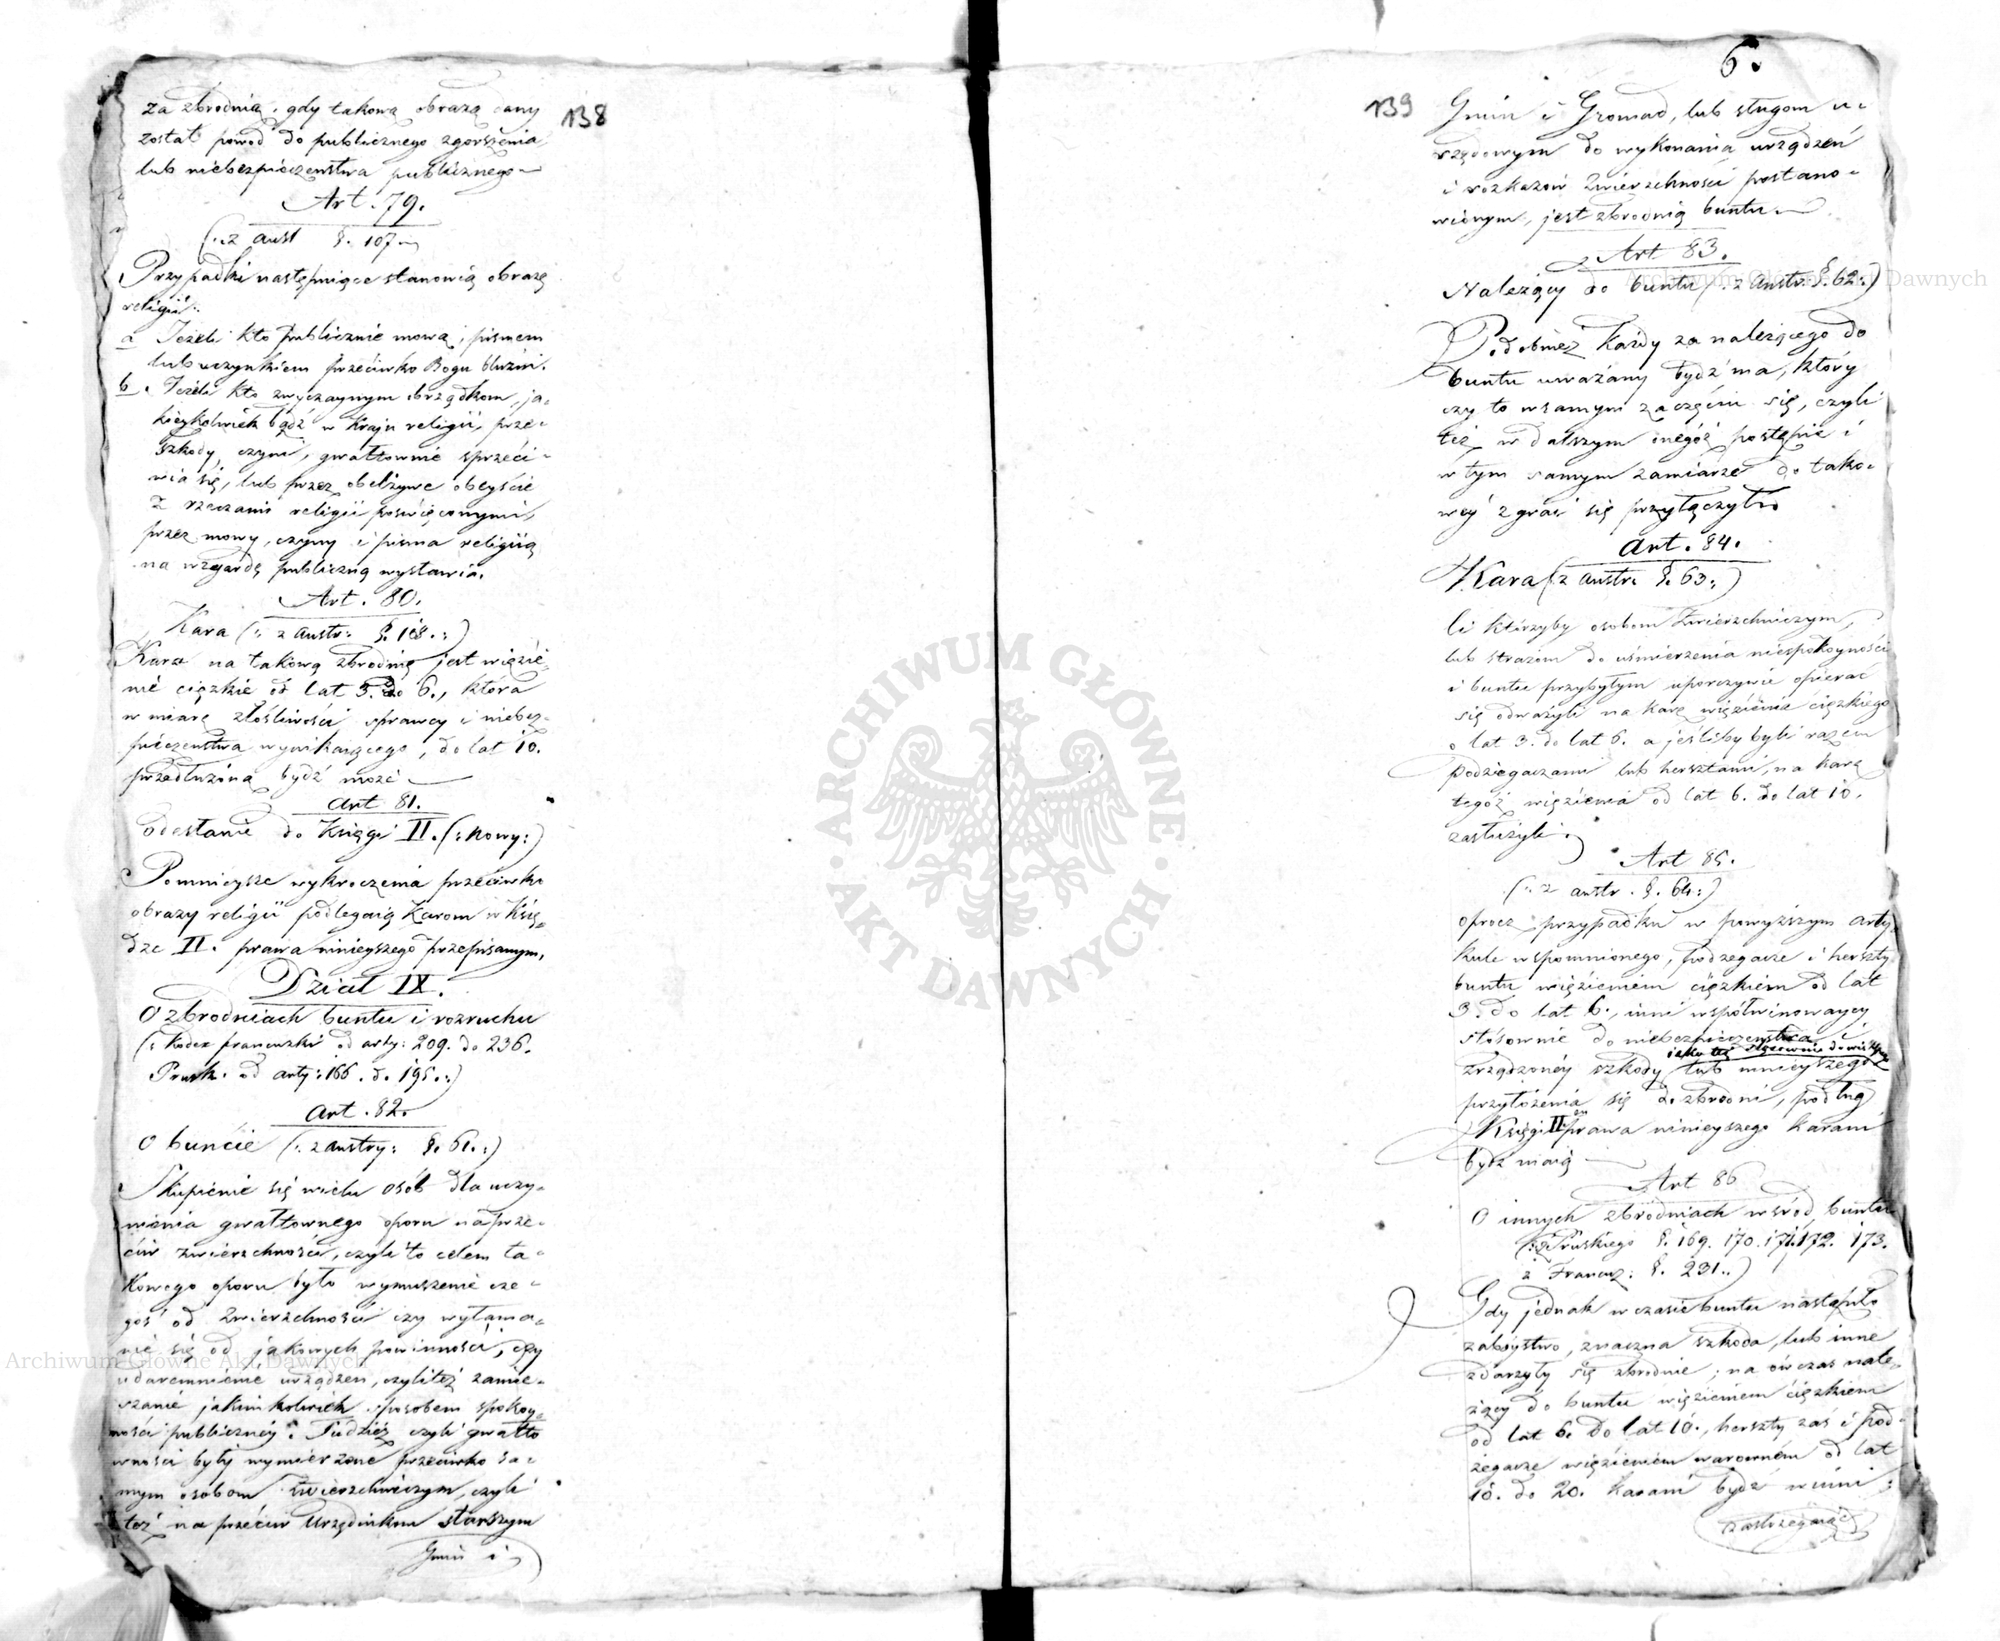 138
za zbrodnią, gdy takową obrazą dany
został powod do publicznego zgorszenia
lub niebezpieczenstwa publicznego
Art. 79.
(: z aust §. 107
Przypadki następuiące stanowią obrazę
religii:
a Jeżeli kto publicznie mową, pismem
lub uczynkiem przeciwko Bogu bluźni.
b. Jeżeli kto zwyczaynym obrządkom, ja-
kieykolwiek bądź w kraju religii, prze-
szkody czyni, gwałtownie sprzeci-
wia się, lub przez obelżywe obeyście
z rzeczami religii poświęconymi,
przez mowy, czyny i pisma religiią
na wzgardę publiczną wystawia.
Art. 80.
Kara (: z austr: §. 108.:)
Kara na takową zbrodnię jest więzie-
nie ciężkie od lat 3. do 6., która
w miarę złośliwości sprawcy i niebez-
pieczenstwa wynikaiącego, do lat 10.
przedłużona bydź może
Art 81.
Odesłanie do Księgi II. (: nowy:)
Pomnieysze wykroczenia przeciwko
obrazy religii podlegaią karom w Księ-
dze II. prawa ninieyszego przepisanym.
Dział IX.
O zbrodniach buntu i rozruchu
(: Kodex francuzki od arty: 209. do 236.
Prusk. od arty: 166. do 195.:)
Art. 82.
O buncie (: z austry: §. 61.:)
Skupienie się wielu osób dla uczy-
nienia gwałtownego oporu naprze-
ciw zwierzchności, czyli to celem ta-
kowego oporu było wymuszenie cze-
goś od Zwierzchności czy wyłama-
nie się od jakowych powinności, czy
udaremnienie urządzen, czyliteż zamie-
szanie jakimkolwiek sposobem spokoy-
ności publiczney. Tudzież czyli gwałto
wności były wymierzone przeciwko sa-
mym osobom Zwierzchniczym, czyli
też na przeciw Urzędnikom starszym
Gmin i
139
6.
Gmin i Gromad, lub sługom u-
rzędowym do wykonania urządzeń
i rozkazow Zwierzchności postano-
wionym, jest zbrodnią buntu.
Art 83.
Należący do buntu (: z austr: §. 62:)
Podobnież każdy za należącego do
buntu uważany bydź ma, który
czy to w samym zaczęciu się, czyli
też w dalszym onegóż postępie i
w tym samym zamiarze do tako-
wey zgrai się przyłączył.
Art. 84.
Kara (: z austr: §. 63:)
Ci którzyby osobom Zwierzchniczym,
lub strażom do uśmierzenia niespokoyności
i buntu przybyłym uporczywie opierać
się odważyli na karę więzienia ciężkiego
o lat 3. do lat 6. a jeśliby byli razem
podżegaczami lub hersztami, na karę
tegóż więzienia od lat 6. do lat 10.
zasłużyli.
Art 85.
(: z austr. §. 64:)
oprocz przypadku w powyższym arty-
kule wspomnionego, podżegacze i herszty
buntu więzieniem ciężkiem od lat
3. do lat 6., inni współwinowaycy
stósownie do niebezpieczenstwa i
zrządzonéy szkody jako też stosownie do większego
lub mnieyszego
przyłożenia się do zbrodni, podług
Księgi II prawa ninieyszego karani
bydź maią
Art 86
O innych zbrodniach wśród buntu
(: z Pruskiego §. 169. 170. 171. 172. 173.
z Francuz: §. 231.:)
Gdy jednak w czasie buntu nastąpiło
zaboystwo, znaczna szkoda, lub inne
zdarzyły się zbrodnie; na ówczas nale-
żący do buntu więzieniem ciężkiem
od lat 6. do lat 10., herszty zaś i pod-
żegacze więzieniem warownem od lat
10. do 20. karani bydź winni;
zastrzegaiąc
Archiwum Główne Akt Dawnych
Archiwum Główne Akt Dawnych
ARCHIWUM GŁÓWNE
AKT DAWNYCH